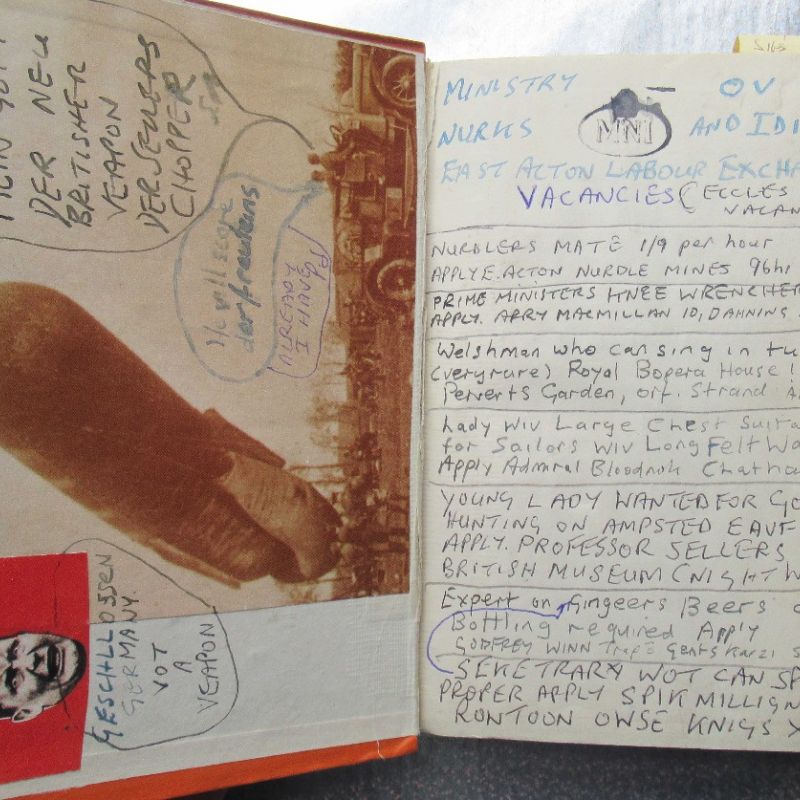 DER NEU
BRITISHER
VEAPON
DERSELLERS
CHOPPER
He vill score
der frauleins
ALREADY
I HAVE
GESCHLLOSSEN
GERMANY.
VOT
A
VEAPON
MINISTRY OV
NURKS MNI AND IDI
EAST ACTON LABOUR EXCHA
VACANCIES (ECCLES
VACAN
NURDLERS MATE 1/9 per hour
APPLY E. ACTON NURDLE MINES 96hi
PRIME MINISTERS KNEE WRENCHER
APPLY. ARRY MACMILLAN 10, DAHNING
Welshman who can sing in tu
(very rare) Royal Bopera House
Perverts Garden, orf. Strand
Lady Wiv Large Chest Suita
for Sailors wiv Long Felt Wa
Apply Admiral Bloodnok Chatha
YOUNG LADY WANTED FOR GO
HUNTING ON AMPSTED EAVF
APPLY. PROFESSOR SELLERS
BRITISH MUSEUM (NIGHT W
Expert on Gingeers Beers
Bottling required Apply
GODFREY WINN Traps Gents Karzi
SEKETRARY WOT CAN SP
PROPER APPLY SPIK MILLIGN
RONTOON OWSE KNIGS